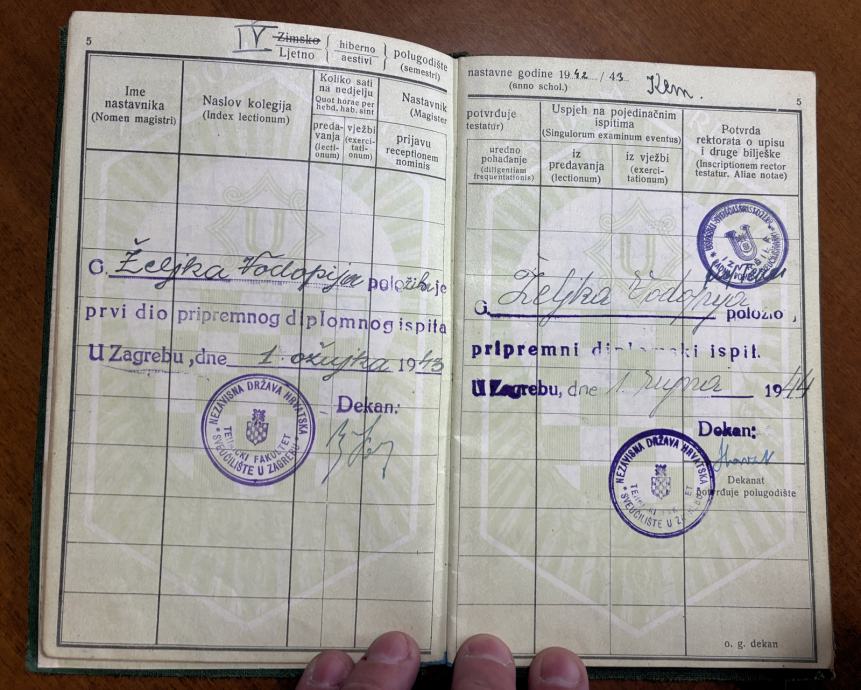 5
IV Zimsko Ljetno { hiberno aestivi } polugodište (semestri)
Ime nastavnika (Nomen magistri)
Naslov kolegija (Index lectionum)
Koliko sati na nedjelju
Quot horae per hebd. hab. sint
preda- vanja (lecti- onum)
vježbi (exerci- tati- onum)
Nastavnik (Magister
prijavu receptionem nominis
G. Željka Vodopija položila je
prvi dio pripremnog diplomnog ispita
U Zagrebu, dne 1. ožujka 1943
Dekan:
NEZAVISNA DRŽAVA HRVATSKA
TEHNIČKI FAKULTET
* SVEUČILIŠTE U ZAGREBU *
nastavne godine 1942 / 43 Kem.
(anno schol.)
5
potvrđuje testatur)
uredno pohađanje (diligentiam frequentationis)
Uspjeh na pojedinačnim ispitima
(Singulorum examinum eventus)
iz predavanja (lectionum)
iz vježbi (exerci- tationum)
Potvrda rektorata o upisu i druge bilješke
(Inscriptionem rector testatur. Aliae notae)
U
G. Željka Vodopija položio
pripremni diplomski ispit.
U Zagrebu, dne 1. rujna 1944
Dekan:
NEZAVISNA DRŽAVA HRVATSKA
* SVEUČILIŠTE U
Dekanat potvrđuje polugodište
o. g. dekan